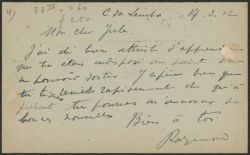 4)
2.50
17.3.12
Mon cher Jules
J'ai été bien attristé d'apprendre
que tu étais indisposé au point de ne
pouvoir sortir. J'espère bien que
tu te rapidement et qu'à
présent tu pourras m'annoncer de
bonnes nouvelles
Bien à toi
Raymond